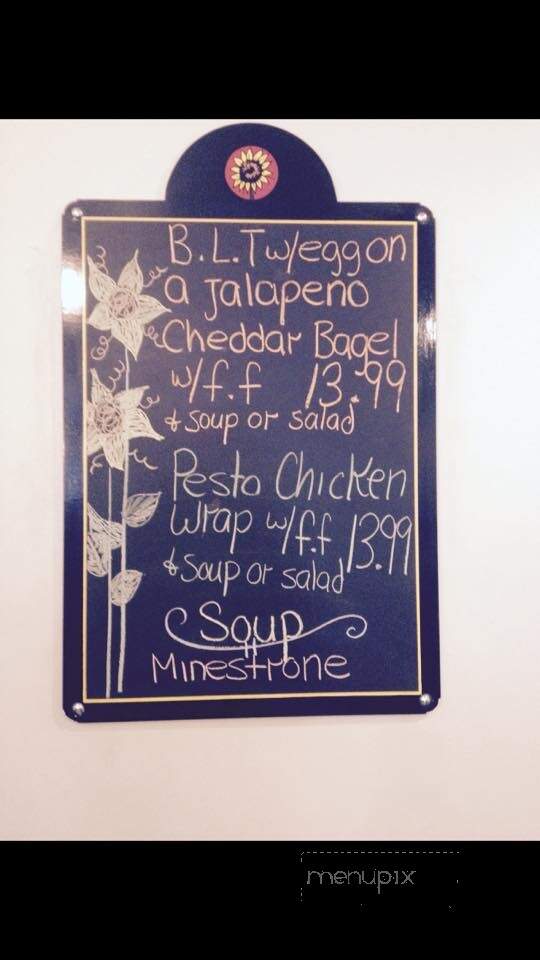 B.L.T w/egg on
a Jalapeno
Cheddar Bagel
w/f.f 13.99
& soup or salad
Pesto Chicken
Wrap w/f.f 13.99
& Soup or salad
Soup
Minestrone
menupix